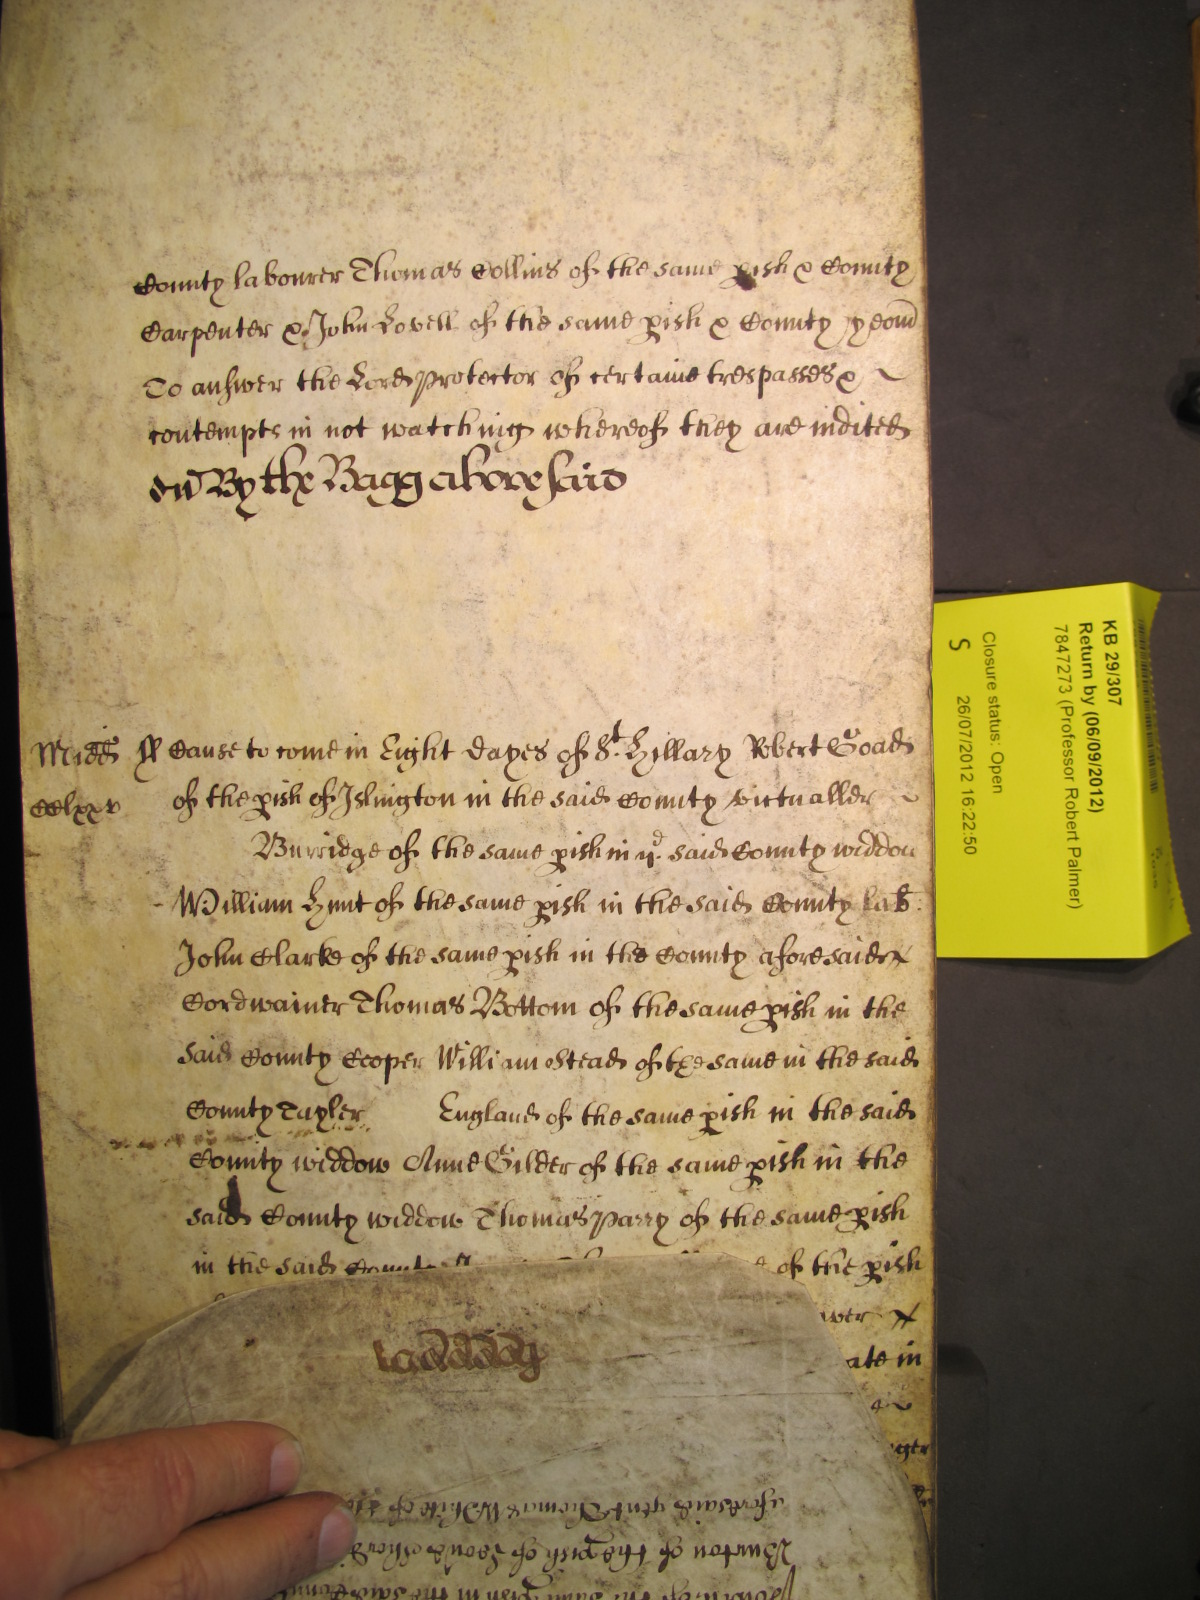 County labourer Thomas Collins of the same pish & County
Carpenter & John Lovell of the same pish & County yeom
To answer the Lord Protector of certaine trespasses &
contempts in not watching whereof they are indited
By the Bagg above said
Midd Cause to come in Eight dayes of St. Hyllary Robert Goad
CClxxv of the pish of Islington in the said County victualler
Burridge of the same pish in ye said County widdow
William Hunt of the same pish in the said County lab:
John Clarke of the same pish in the County aforesaid
Cordwainer Thomas Bottom of the same pish in the
said County Cooper William Stead of the same in the said
County Tayler England of the same pish in the said
County widdow Anne Gilder of the same pish in the
said County widdow Thomas Parry of the same pish
in the said of the pish
ate in
aforesaid gent Thomas White of
Burton of the pish of
of the same pish in the said
KB 29/307
Return by (06/09/2012)
7847273 (Professor Robert Palmer)
Closure status: Open
S 26/07/2012 16:22:50